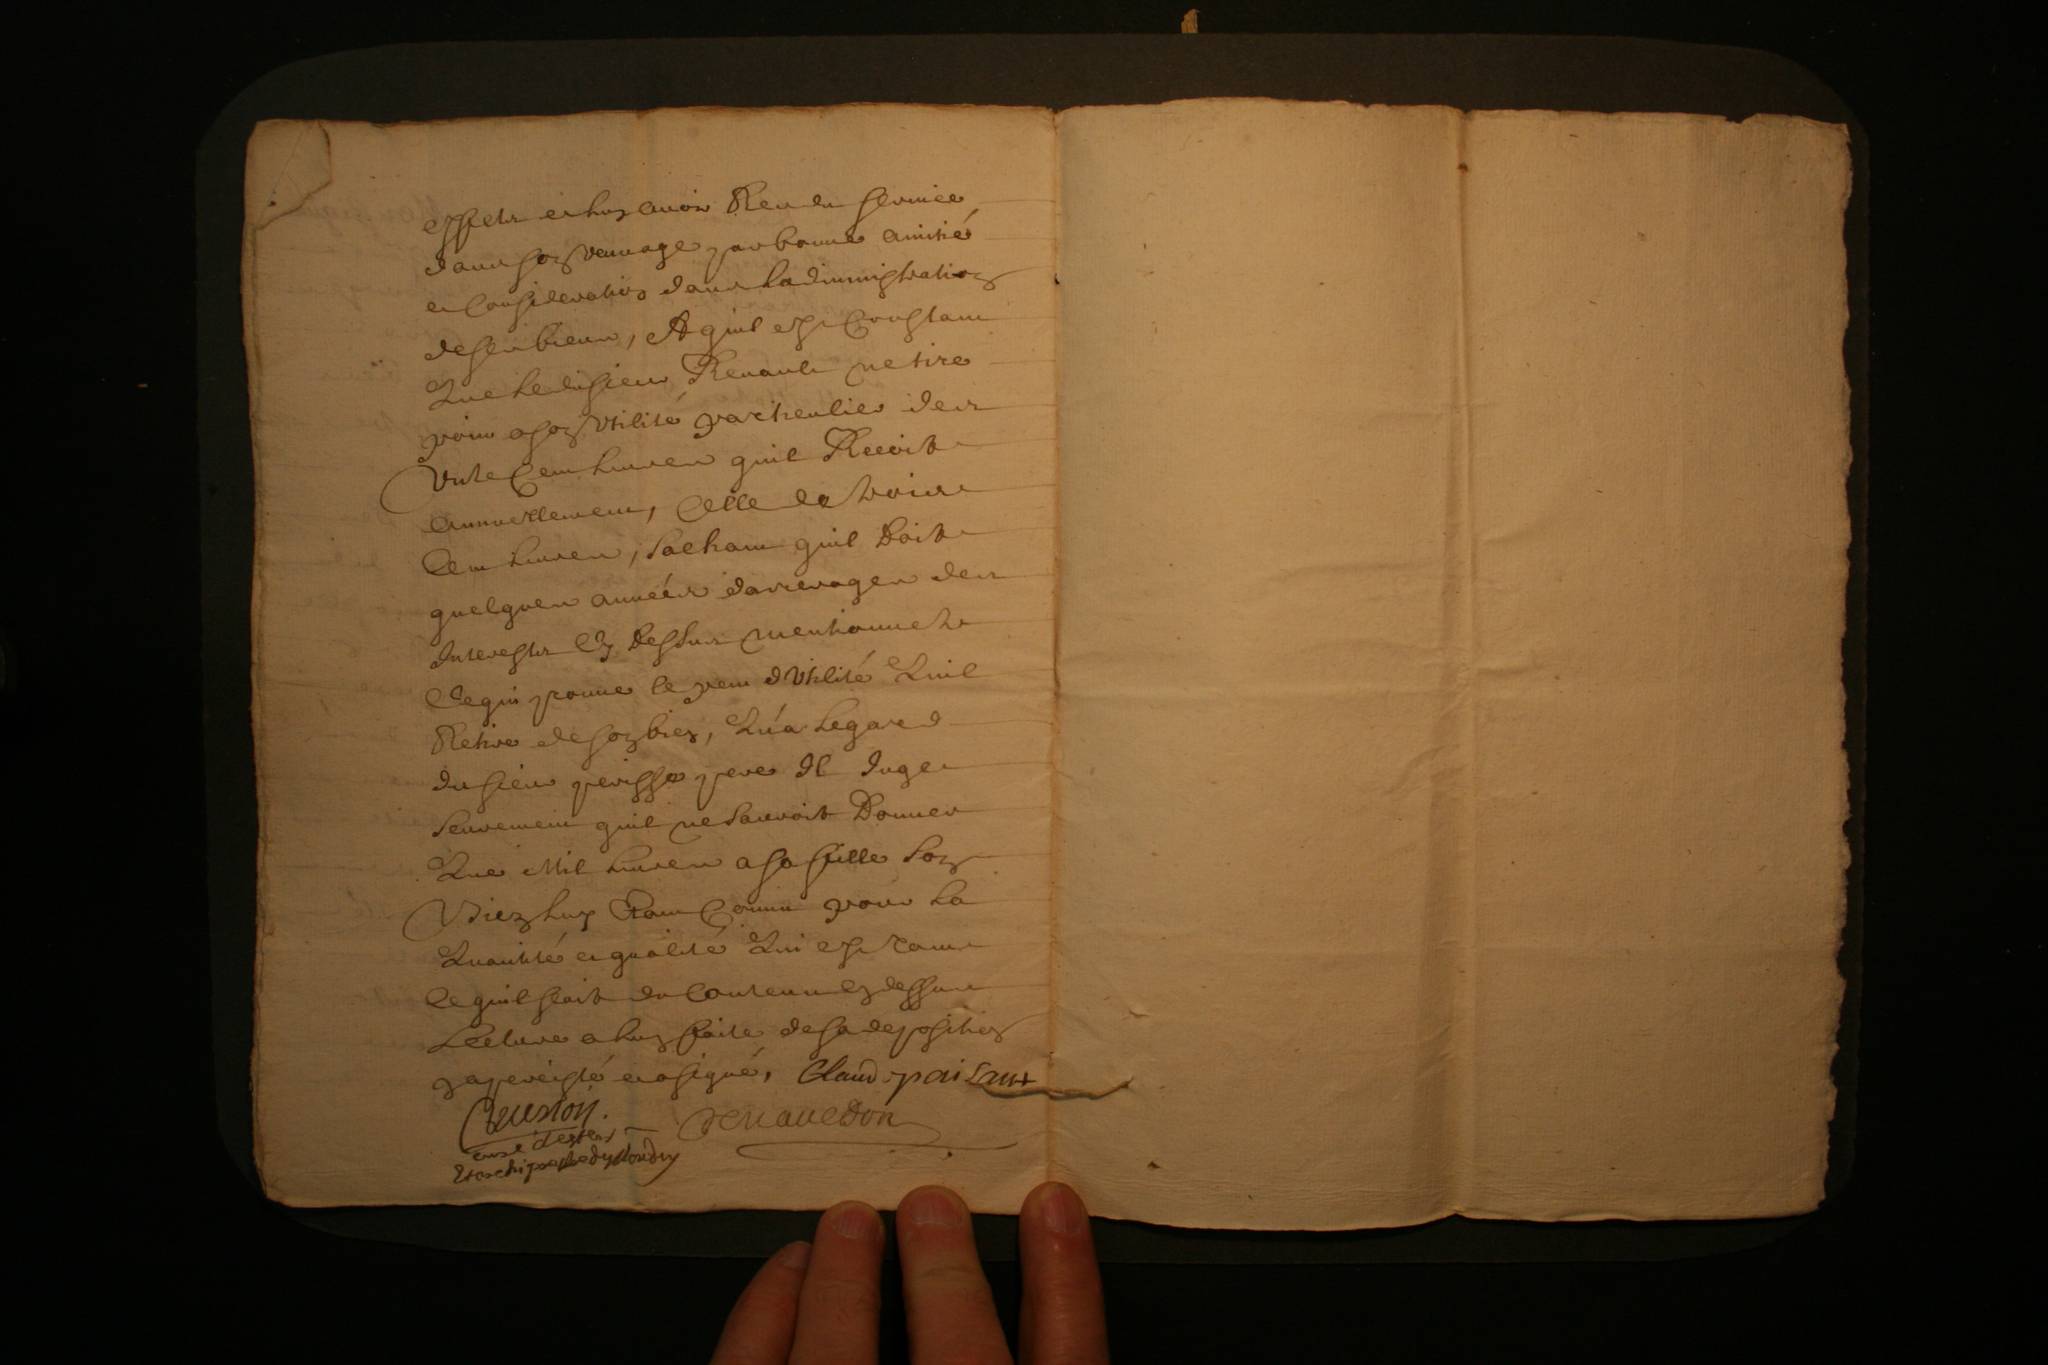 effets et luy avoir Rendu service
dans son vefvage par bonne amitié
et Consideration dans Ladimmistration
de ses biens, Et quil est Constant
Que Ledit sieur Renault ne tire
point a son Vtilité particulier des
Cent livres quil Recoit
annuellement, Celle de trois
Cent livres, sachant quil Doit
quelques années darrerages des
Interests Cy dessus mentionnets
Ce qui prouve le peu dVtilité Quil
Retire de son bien, Qúa Legard
du sieur perisse pere Il Juge
seurement quil ne sauroit Donner
Que Mil livres a sa fille son
Bien luy Etant Connu pour La
Quantité et qualité Qui est tout
Ce quil scait du Contenu Cy dessus
Lecture a luy faite de sa deposition
y a persisté et a signé, Claud paisant
Cuision.
curé dester
Et archiprestre du
De Mauedon